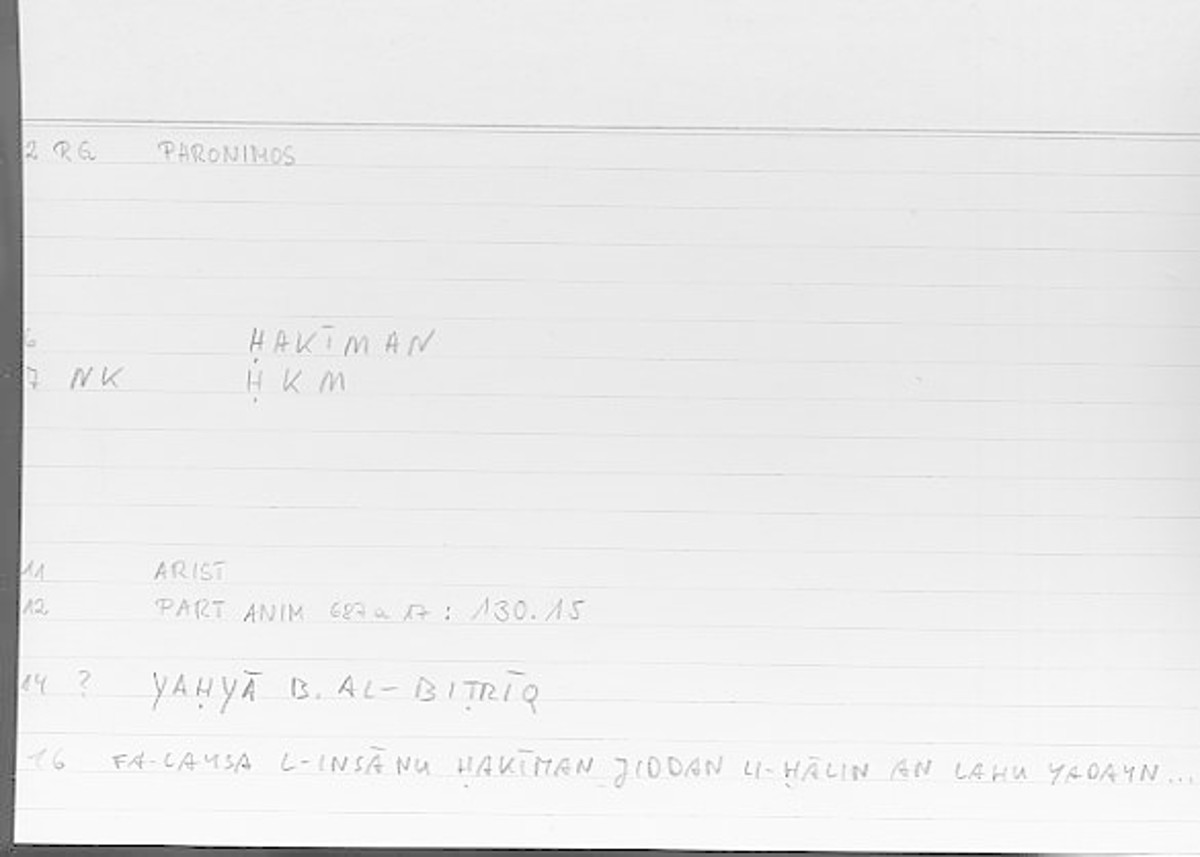 2 RG PARONIMOS
6 ḤAKĪMAN
7 NK ḤKM
11 ARIST
12 PART ANIM 687a 17 : 130.15
14 ? YAḤYĀ B. AL-BIṬRĪQ
16 FA-LAYSA L-INSĀNU ḤAKĪMAN JIDDAN LI-ḤĀLIN AN LAHU YADAYN...